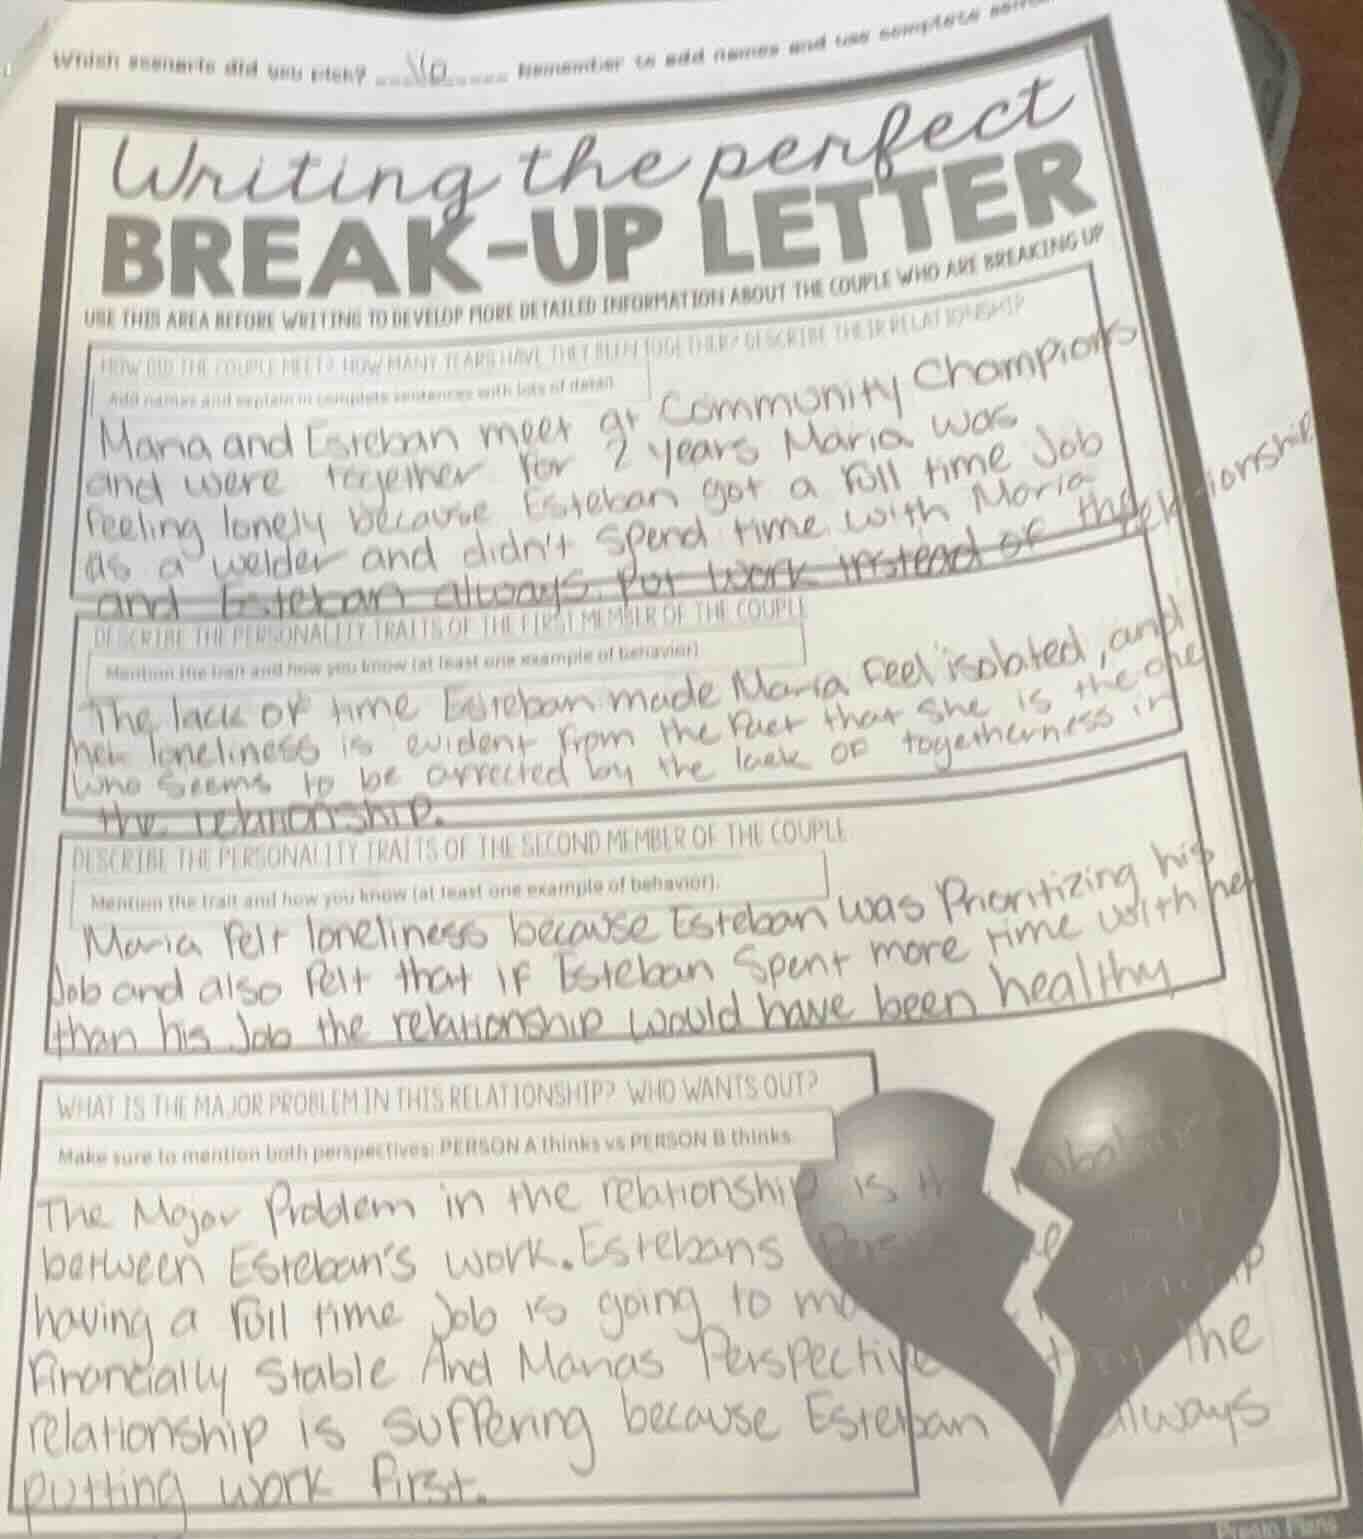 Which scenario did you pick? 16 Remember to add names and use complete
Writing the perfect
BREAK-UP LETTER
USE THIS AREA BEFORE WRITING TO DEVELOP MORE DETAILED INFORMATION ABOUT THE COUPLE WHO ARE BREAKING UP
HOW DID THE COUPLE MEET? HOW MANY YEARS HAVE THEY BEEN TOGETHER? DESCRIBE THEIR RELATIONSHIP
Add names and explain in complete sentences with lots of detail
Maria and Esteban meet at Community Champions
and were together for 2 years Maria was
feeling lonely because Esteban got a full time Job
as a welder and didn't spend time with Maria
and Esteban always put work instead of the relationship
DESCRIBE THE PERSONALITY TRAITS OF THE FIRST MEMBER OF THE COUPLE
Mention the trait and how you know (at least one example of behavior)
The lack of time Esteban made Maria feel isolated, and
her loneliness is evident from the fact that she is the one
who seems to be affected by the lack of togetherness in
the relationship.
DESCRIBE THE PERSONALITY TRAITS OF THE SECOND MEMBER OF THE COUPLE
Mention the trait and how you know (at least one example of behavior).
Maria felt loneliness because Esteban was Prioritizing his
Job and also felt that if Esteban Spent more time with her
than his Job the relationship would have been healthy
WHAT IS THE MAJOR PROBLEM IN THIS RELATIONSHIP? WHO WANTS OUT?
Make sure to mention both perspectives: PERSON A thinks vs PERSON B thinks
The Major Problem in the relationship is
between Esteban's work. Estebans
having a full time Job is going to
Financially Stable And Marias Perspective the
relationship is suffering because Esteban always
putting work first.